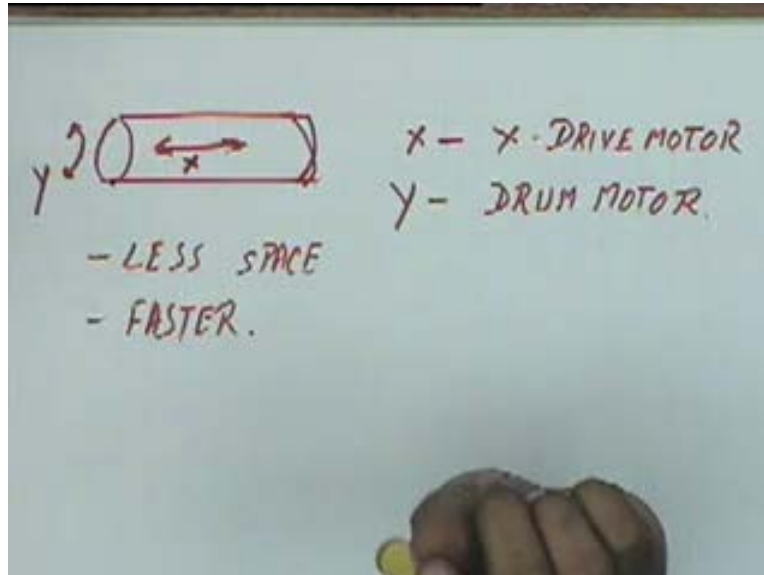 X - X-DRIVE MOTOR
Y X
Y - DRUM MOTOR.
- LESS SPACE
- FASTER.